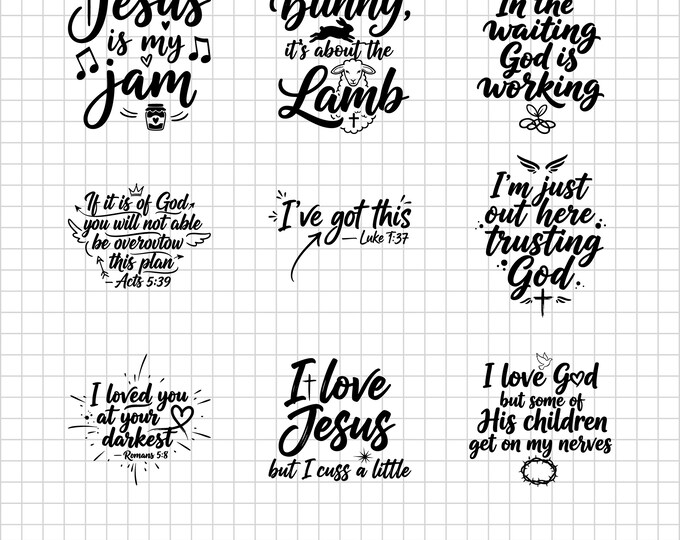 Jesus
is my
jam
Bunny,
it's about the
Lamb
In the
waiting
God is
working
If it is of God
you will not able
be overovtow
this plan
– Acts 5:39
I've got this
— Luke 1:37
I'm just
out here
trusting
God.
I loved you
at your
darkest
– Romans 5:8
I love
Jesus
but I cuss a little
I love God
but some of
His children
get on my nerves